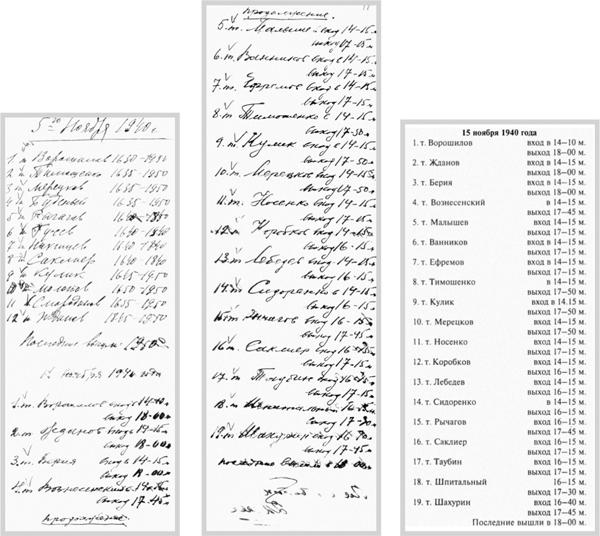 5го Ноября 1940г.
1 т Ворошилов 1650-1950
2 т Тимошенко 1655-1950
3 т Мерецков 1655-1950
4 т Буденый 1655-1950
5 т Рычагов
6 т Гусев 1640-1840
7 т 1640-1840
8 т Сакслиер 1640-1840
9 т Кулик 1655-1950
10 т 1650-1950
11 т Смородинов 1655-1950
12 т Жданов 1835-1950
Последние вышли
ноября 1940 года
1. т. Ворошилов вход в 14-10 м
выход 18-00 м
2. т Жданов вход в 14-15
выход 18-00
3. т. Берия вход в 14-15
выход 18-00
4. т Вознесенский в 14-15 м
выход 17-45 м
продолжение
11
продолжение
5. т. Малышев вход 14-15 м
выход 17-45 м
6. т. Ванников вход в 14-15
выход 17-45
7. т. Ефремов вход в 14-15
выход 17-15
8. т Тимошенко в 14-15
выход 17-50
9. т Кулик вход в 14-15
выход 17-50 м
10. т. Мерецков вход 14-15
выход 17-50
11. т. Носенко вход 14-15
выход 17-15 м
12. т Коробков вход 14-15
выход 16-15
13. т Лебедев вход 14-15
выход 16-15
14. т Сидоренко в 14-15
выход 16-15
15. т Рычагов вход 16-15
выход 17-45
16. т Саклиер вход 16-15
выход 17-15
17. т Таубин вход 16-15
выход 17-15
18. т Шпитальный 16-15
выход 17-30
19. т Шахурин вход 16-40
выход 17-45
последние вышли в 18-00
15 ноября 1940 года
1. т. Ворошилов вход в 14—10 м.
выход 18—00 м.
2. т. Жданов вход в 14—15 м.
выход 18—00 м.
3. т. Берия вход в 14—15 м.
выход 18—00 м.
4. т. Вознесенский в 14—15 м.
выход 17—45 м.
5. т. Малышев вход 14—15 м.
выход 17—45 м.
6. т. Ванников вход в 14—15 м.
выход 17—45 м.
7. т. Ефремов вход в 14—15 м.
выход 17—15 м.
8. т. Тимошенко в 14—15 м.
выход 17—50 м.
9. т. Кулик вход в 14.15 м.
выход 17—50 м.
10. т. Мерецков вход 14—15 м.
выход 17—50 м.
11. т. Носенко вход 14—15 м.
выход 17—15 м.
12. т. Коробков вход 14—15 м.
выход 16—15 м.
13. т. Лебедев вход 14—15 м.
выход 16—15 м.
14. т. Сидоренко в 14—15 м.
выход 16—15 м.
15. т. Рычагов вход 16—15 м.
выход 17—45 м.
16. т. Саклиер вход 16—15 м.
выход 17—15 м.
17. т. Таубин вход 16—15 м.
выход 17—15 м.
18. т. Шпитальный 16—15 м.
выход 17—30 м.
19. т. Шахурин вход 16—40 м.
выход 17—45 м.
Последние вышли в 18—00 м.